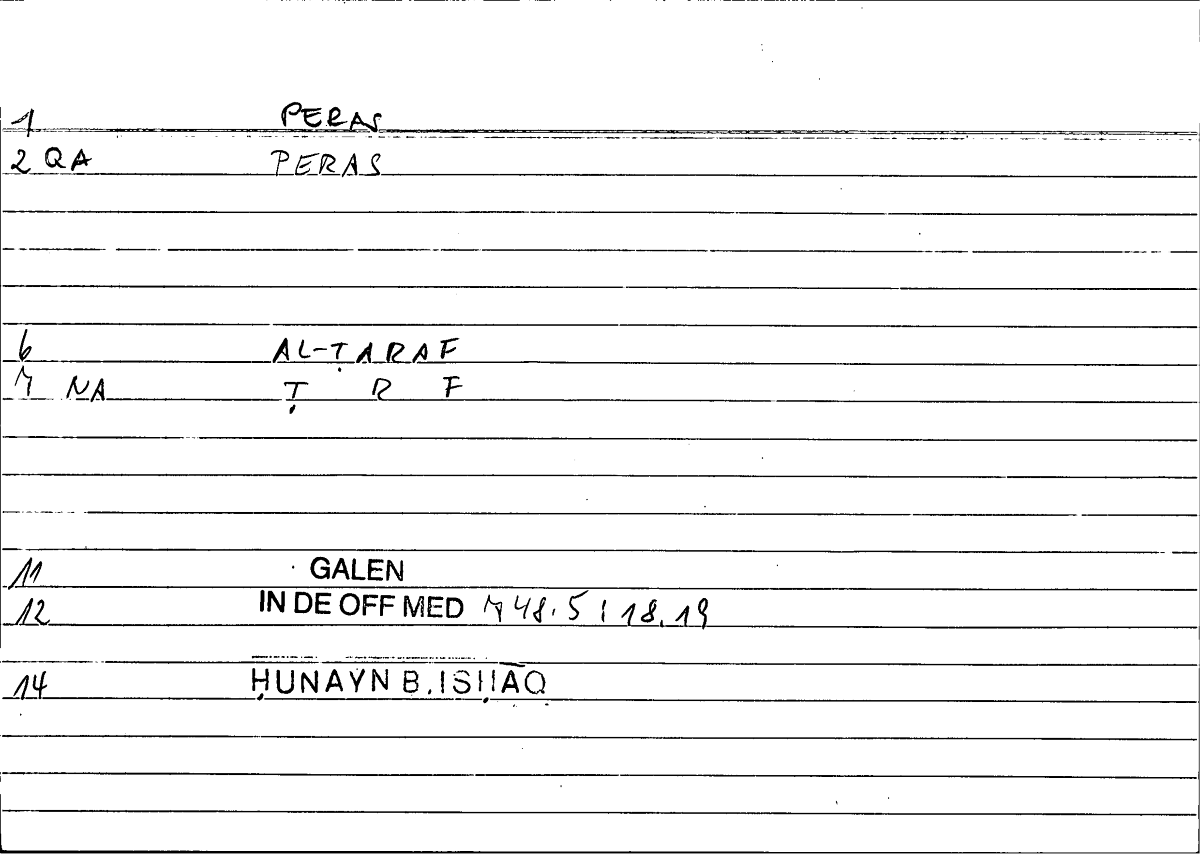 1 PERAS
2 QA PERAS
6 AL-ṬARAF
7 NA Ṭ R F
11 GALEN
12 IN DE OFF MED 748.5 : 18.19
14 ḤUNAYN B. ISḤĀQ